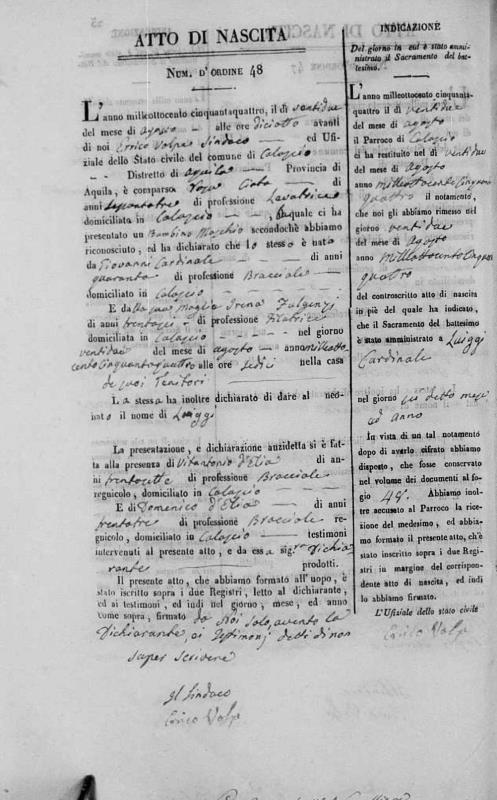 ATTO DI NASCITA
NUM. D'ORDINE 48
L'anno milleottocento cinquantaquattro, il dì ventidue
del mese di agosto — alle ore diciotto avanti
di noi Errico Volpe Sindaco — ed Ufi-
ziale dello Stato civile del comune di Calascio
Distretto di Aquila — Provincia di
Aquila, è comparsa Rosa — di
anni sessantatre di professione Lavatrice
domiciliata in Calascio — — , la quale ci ha
presentato un Bambino Maschio secondochè abbiamo
riconosciuto, ed ha dichiarato che lo stesso è nato
da Giovanni Cardinale — di anni
quaranta di professione Bracciale —
domiciliato in Calascio — —
E dalla sua Moglie Irena Fulgenzj
di anni — di professione Filatrice
domiciliata in Calascio — — nel giorno
ventidue del mese di agosto — anno milleotto
cento cinquantaquattro alle ore sedici nella casa
de suoi Genitori —
La stessa ha inoltre dichiarato di dare al neo-
nato il nome di Luiggi
La presentazione, e dichiarazione anzidetta si è fat-
ta alla presenza di Vitantonio d'Elia — di an-
ni trentasette di professione Bracciale
regnicolo, domiciliato in Calascio —
E di Domenico d'Elia — di anni
trentatre di professione Bracciale re-
gnicolo, domiciliato in Calascio — testimoni
intervenuti al presente atto, e da essa sig.ra Dichia
rante — prodotti.
Il presente atto, che abbiamo formato all'uopo, è
stato iscritto sopra i due Registri, letto al dichiarante,
ed ai testimoni, ed indi nel giorno, mese, ed anno
come sopra, firmato da Noi solo, avendo la
Dichiarante, ei Testimonj detto di non
saper scrivere
Il Sindaco
Errico Volpe
INDICAZIONE
Del giorno in cui è stato ammi-
nistrato il Sacramento del bat-
tesimo.
L'anno milleottocento cinquanta-
quattro il dì ventidue
del mese di agosto
il Parroco di Calascio
ci ha restituito nel dì ventidue
del mese di agosto
anno Milleottocento Cinquan
quattro il notamento,
che noi gli abbiamo rimesso nel
giorno ventidue
del mese di Agosto
anno Milleottocento Cinquan
quattro
del controscritto atto di nascita
in piè del quale ha indicato,
che il Sacramento del battesimo
è stato amministrato a Luiggi
Cardinale
nel giorno detto mese
ed anno
In vista di un tal notamento
dopo di averlo cifrato abbiamo
disposto, che fosse conservato
nel volume dei documenti al fo-
gio 48. Abbiamo inol-
tre accusato al Parroco la rice-
zione del medesimo, ed abbia-
mo formato il presente atto, ch'è
stato inscritto sopra i due Regi-
stri in margine del corrispon-
dente atto di nascita, ed indi
lo abbiamo firmato.
L'Ufiziale dello stato civile
Errico Volpe